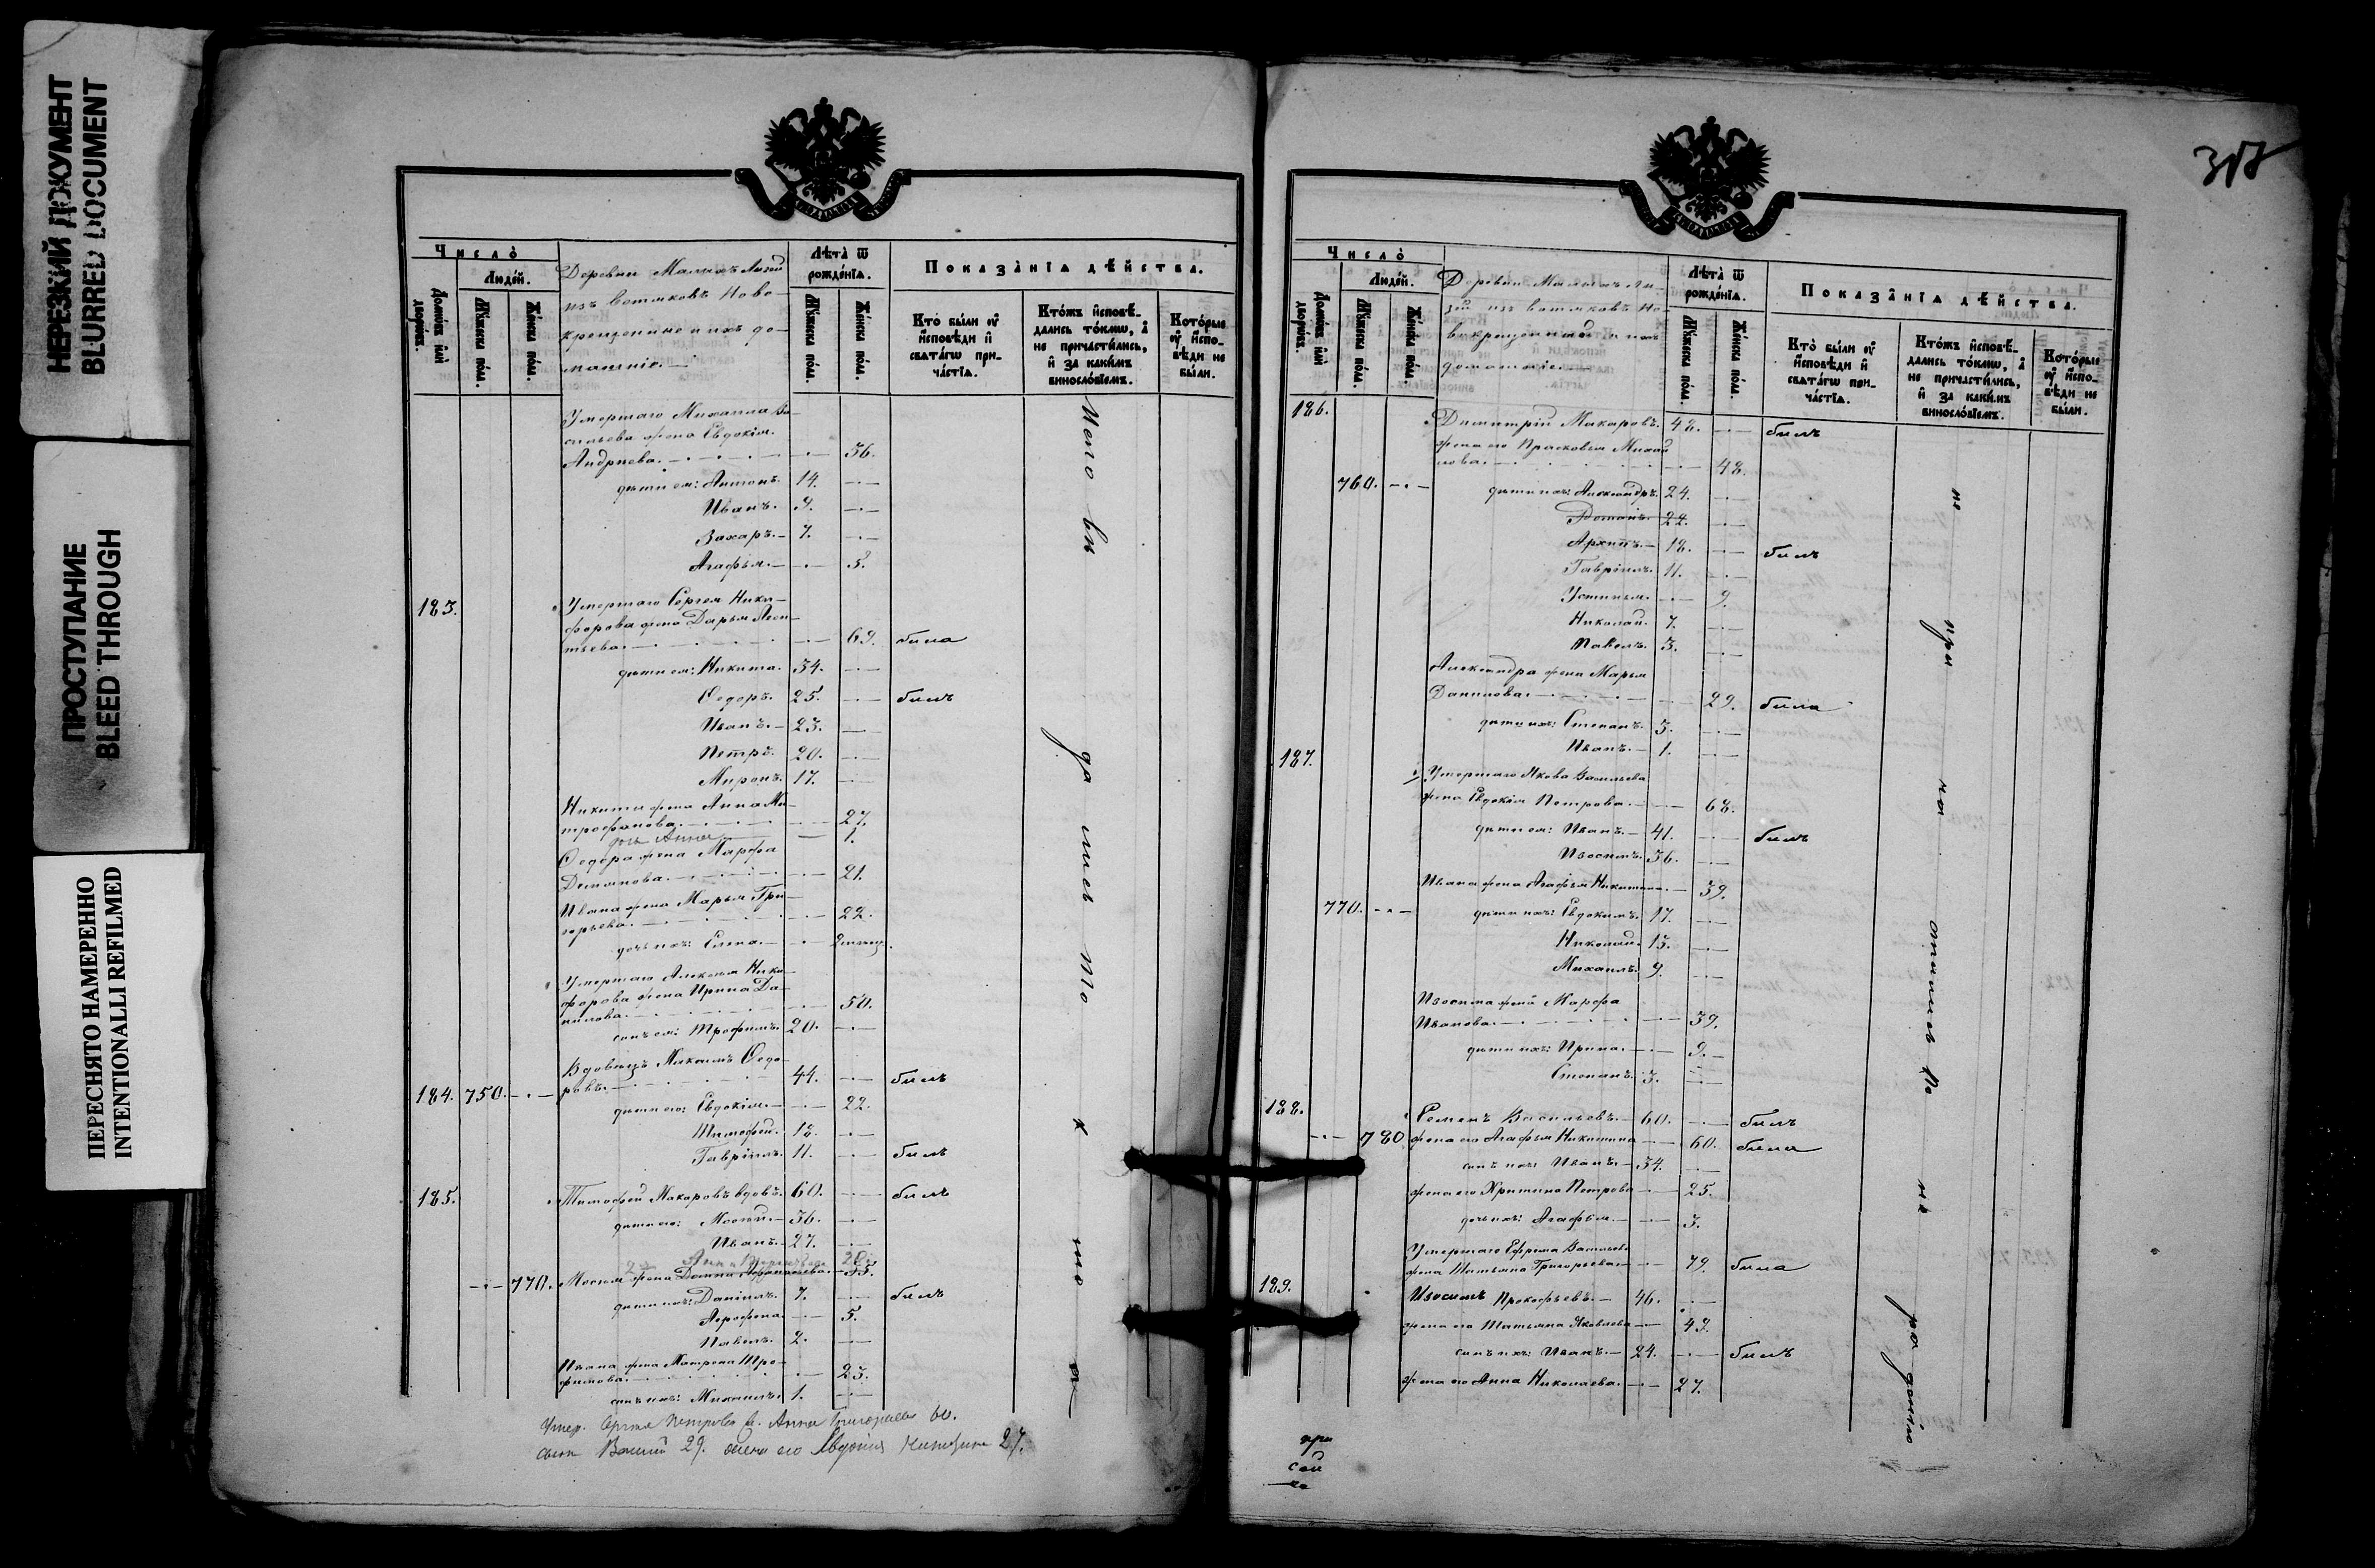 НЕРЕЗКИЙ ДОКУМЕНТ
BLURRED DOCUMENT
ПРОСТУПАНИЕ
BLEED THROUGH
ПЕРЕСНЯТО НАМЕРЕННО
INTENTIONALLI REFILMED
Число̀
Людей.
Домѡвъ и҆лѝ дворѡвъ.
Мꙋжеска полꙋ.
Женска полꙋ.
Деревни Малыхъ Лызи
изъ вотяковъ Ново-
крещенные и ихъ до-
машніе. —
Лѣта̀ ѿ рожденїѧ.
Мꙋжеска полꙋ.
Женска полꙋ.
Показанїѧ дѣйства.
Кто̀ были ᲂу҆
и҆сповѣди и҆
свѧтагѡ при-
частїѧ.
Ктожъ и҆сповѣ-
дались токмѡ, а҆
не причастились,
и҆ за какимъ
винословїемъ.
Которые
ᲂу҆ и҆спо-
вѣди не
были.
Умершаго Михаила Ва-
сильева жена Евдокія
Андреева. — 36.
дѣти ея: Антонъ. 14. —
Иванъ. 9. —
Захаръ. — 7. —
Агафья. — 5.
183. Умершаго Сергея Ники-
форова жена Дарья Леон-
тьева. — 69. была
дѣти ея: Никита. 34. —
Ѳедоръ. 25. — былъ
Иванъ. — 23. —
Петръ. 20. —
Миронъ. 17. —
Никиты жена Анна Ми-
трофанова. — 27.
дочь Анна — 1.
Ѳедора жена Марфа
Демьянова. — 21.
Ивана жена Марья Гри-
горьева. — 22.
дочь ихъ: Елена. —
Умершаго Алексея Ники-
форова жена Ирина Да-
нилова. — 50.
сынъ ея: Трофимъ. 20. —
Вдовецъ Максимъ Ѳедо-
184. 750. — ровъ. — 44. — былъ
дѣти его: Евдокія. — 22.
Тимофей. 18. —
Гавріилъ. 11. — былъ
185. Тимофей Макаровъ вдовъ. 60. — былъ
дѣти его: Мосей. — 36. —
Иванъ. — 27. —
Анна 28.
— 770. Мосея жена Домна Афонасьева. — 35.
дѣти ихъ: Даніилъ. 7. — былъ
Агрофена — 5.
Павелъ. 2. —
Ивана жена Матрена Тро-
фимова. — 23.
сынъ ихъ: Михаилъ. 1. —
Умер. Сергея Петрова ж. Анна Григорьева 60.
сынъ 29. жена его Евдокия Никитина 27.
318
Число̀
Людей.
Домѡвъ и҆лѝ дворѡвъ.
Мꙋжеска полꙋ.
Женска полꙋ.
Деревни Малыхъ Лы-
зей изъ вотяковъ Но-
вокрещенные и ихъ
домашніе. —
Лѣта̀ ѿ рожденїѧ.
Мꙋжеска полꙋ.
Женска полꙋ.
Показанїѧ дѣйства.
Кто̀ были ᲂу҆
и҆сповѣди и҆
свѧтагѡ при-
частїѧ.
Ктожъ и҆сповѣ-
дались токмѡ, а҆
не причастились,
и҆ за какимъ
винословїемъ.
Которые
ᲂу҆ и҆спо-
вѣди не
были.
186. Димитрій Макаровъ. 48. — былъ
жена его Прасковья Михай-
лова. — 48.
760. — дѣти ихъ: Александръ. 24. —
Романъ. 22. —
Архипъ. — 18. — былъ
Гавріилъ. 11. —
Устинья. — 9.
Николай. 7. —
Павелъ. 3. —
Александра жена Марья
Данилова. — 29. была
дѣти ихъ: Степанъ. 3. —
Иванъ. — 1. —
187. Умершаго Якова Васильева
жена Евдокія Петрова. — 68.
дѣти ея: Иванъ. — 41. — былъ
Изосимъ. 36. —
Ивана жена Агафья Никитина. — 39.
770. — дѣти ихъ: Евдокимъ. 17. —
Николай. 13. —
Михаилъ. 9. —
Изосима жена Марфа
Иванова. — 39.
дѣти ихъ: Ирина. — 9.
Степанъ. 3. —
188. Семенъ Васильевъ. — 60. — былъ
— 780 жена его Агафья Никитина — 60. была
сынъ ихъ: Иванъ. — 34. —
жена его Христина Петрова — 25.
дочь ихъ: Агафья. — 3.
Умершаго Ефрема Васильева
жена Татьяна Григорьева — 79. была
189. Изосимъ Прокофьевъ. — 46. —
жена его Татьяна Яковлева — 49.
сынъ ихъ: Иванъ. — 24. — былъ
жена его Анна Николаева. — 27.